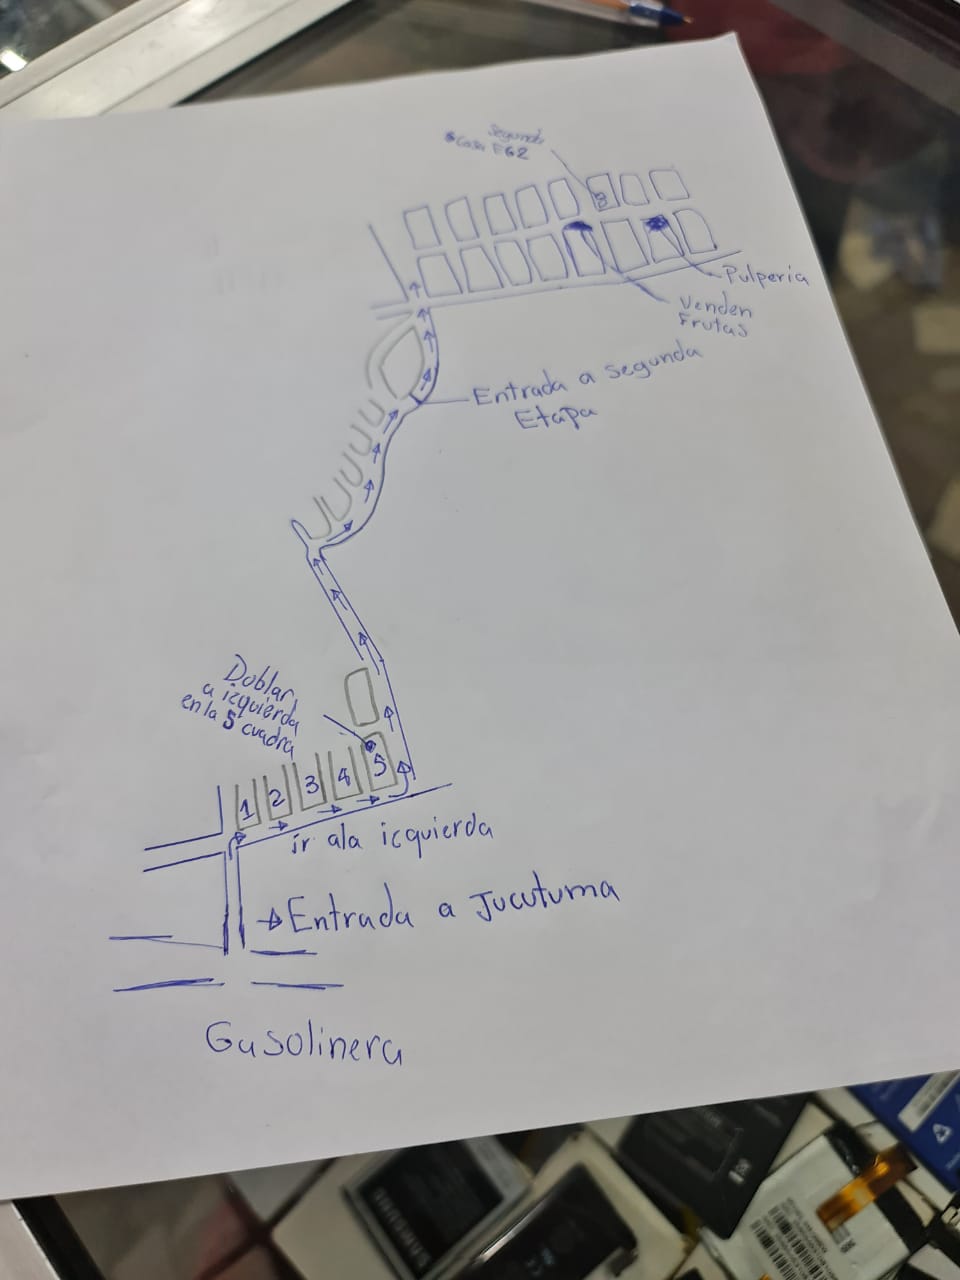 Segunda
Casa E62
Pulperia
Venden
Frutas
Entrada a segunda
Etapa
Doblar
a izquierda
en la 5 cuadra
1 2 3 4 5
ir ala icquierda
Entrada a Jucutuma
Gasolinera
SAMSUNG